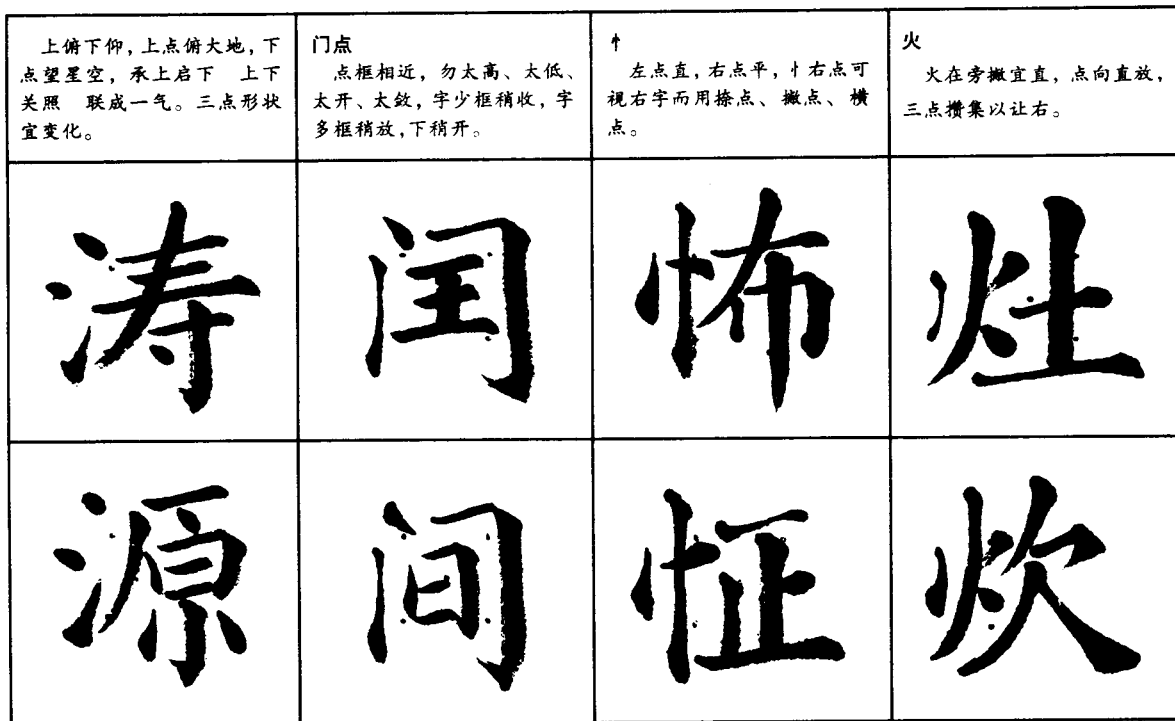 上俯下仰，上点俯大地，下
点望星空，承上启下 上下
关照 联成一气。三点形状
宜变化。
门点
点框相近，勿太高、太低、
太开、太敛，字少框稍收，字
多框稍放，下稍开。
忄
左点直，右点平，忄右点可
视右字而用捺点、撇点、横
点。
火
火在旁撇宜直，点向直放，
三点攒集以让右。
涛 闰 怖 灶
源 间 怔 炊